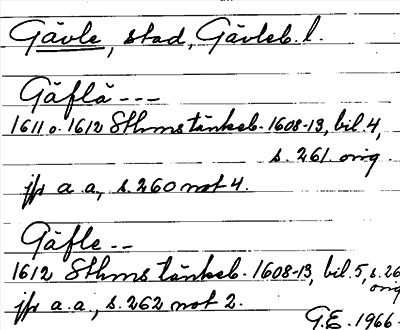 Gävle, stad, Gävleb. l.
Gäflä ---
1611 o. 1612 Sthms tänkeb. 1608-13, bil. 4,
s. 261. orig.
jfr a.a, s. 260 not 4.
Gäfle --
1612 Sthms tänkeb. 1608-13, bil. 5, s. 26
orig
jfr a.a., s. 262 not 2.
G.E. 1966.